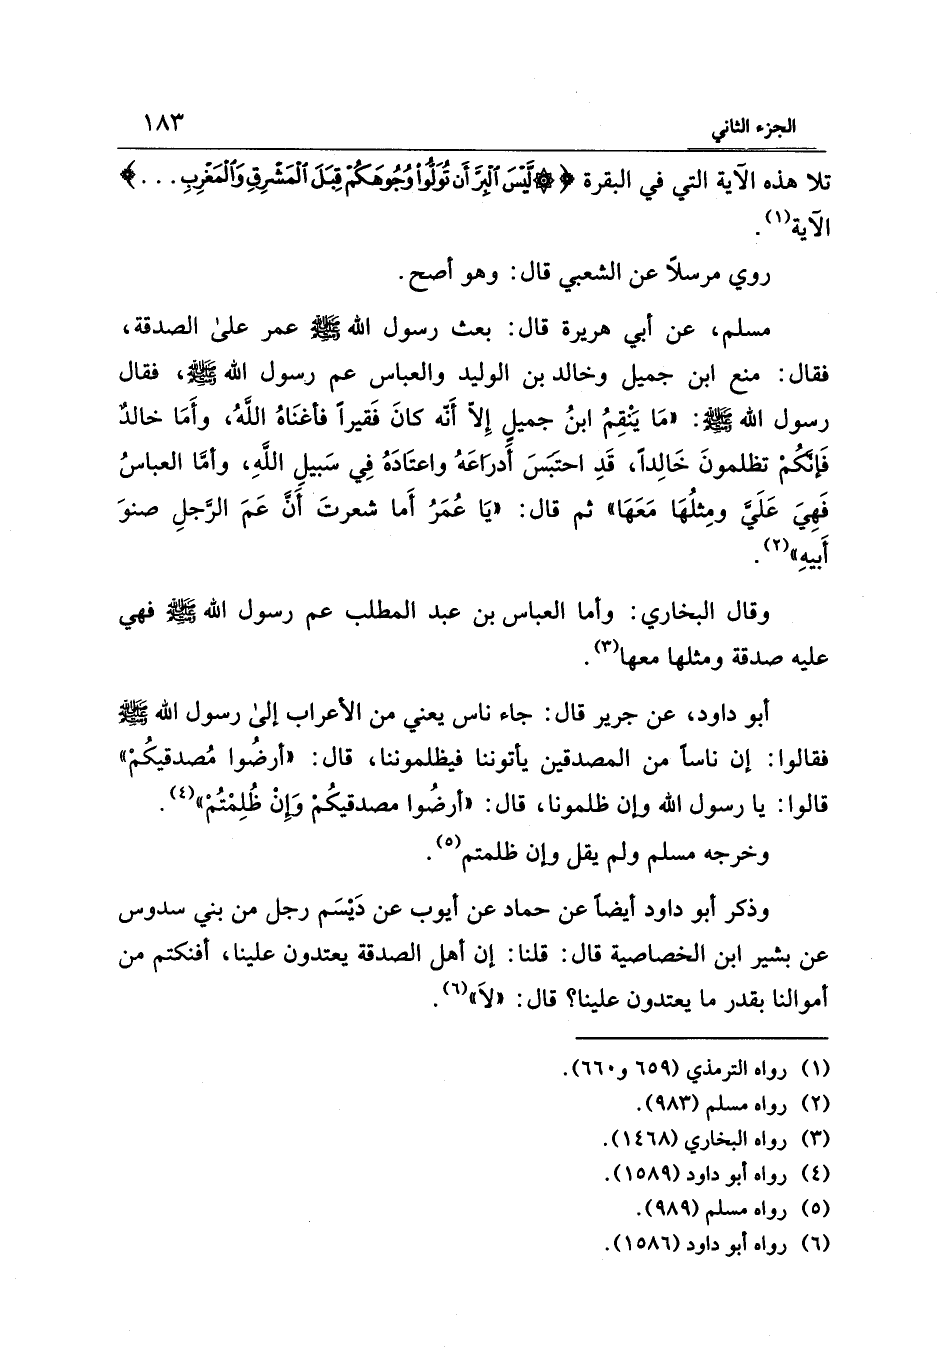 الجزء الثاني ١٨٣
تلا هذه الآية التي في البقرة ﴿۞لَّيْسَ ٱلْبِرَّ أَن تُوَلُّوا۟ وُجُوهَكُمْ قِبَلَ ٱلْمَشْرِقِ وَٱلْمَغْرِبِ...﴾
الآية(١).
روي مرسلاً عن الشعبي قال: وهو أصح.
مسلم، عن أبي هريرة قال: بعث رسول الله ﷺ عمر علىٰ الصدقة،
فقال: منع ابن جميل وخالد بن الوليد والعباس عم رسول الله ﷺ، فقال
رسول الله ﷺ: «مَا يَنْقِمُ ابنُ جميلٍ إِلاّ أَنَّه كانَ فَقيراً فأغنَاهُ اللَّهُ، وأَمَا خالدٌ
فَإِنَّكُمْ تظلمونَ خَالِداً، قَدِ احتَبَسَ أَدرَاعَهُ واعتَادَهُ فِي سَبيلِ اللَّهِ، وأمَّا العباسُ
فَهِيَ عَلَيَّ ومِثلُهَا مَعَهَا» ثم قال: «يَا عُمَرُ أَما شعرتَ أَنَّ عَمَ الرَّجلِ صنوَ
أَبيهِ»(٢).
وقال البخاري: وأما العباس بن عبد المطلب عم رسول الله ﷺ فهي
عليه صدقة ومثلها معها(٣).
أبو داود، عن جرير قال: جاء ناس يعني من الأعراب إلىٰ رسول الله ﷺ
فقالوا: إن ناساً من المصدقين يأتوننا فيظلموننا، قال: «أرضُوا مُصدقيكُمْ»
قالوا: يا رسول الله وإن ظلمونا، قال: «أرضُوا مصدقيكُمْ وَإِنْ ظُلِمْتُمْ»(٤).
وخرجه مسلم ولم يقل وإن ظلمتم(٥).
وذكر أبو داود أيضاً عن حماد عن أيوب عن دَيْسَم رجل من بني سدوس
عن بشير ابن الخصاصية قال: قلنا: إن أهل الصدقة يعتدون علينا، أفنكتم من
أموالنا بقدر ما يعتدون علينا؟ قال: «لاَ»(٦).
(١) رواه الترمذي (٦٥٩ و٦٦٠).
(٢) رواه مسلم (٩٨٣).
(٣) رواه البخاري (١٤٦٨).
(٤) رواه أبو داود (١٥٨٩).
(٥) رواه مسلم (٩٨٩).
(٦) رواه أبو داود (١٥٨٦).